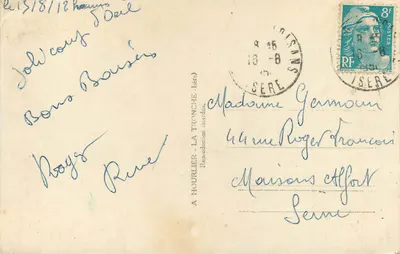 Bons Baisers
Roger
René
A HOURLIER - LA TRONCHE (Isère)
Reproduction interdite
8 15
18 - 8
ISERE
8F
RF
ISERE
Madame Germain
44 rue Roger François
Maisons Alfort
Seine